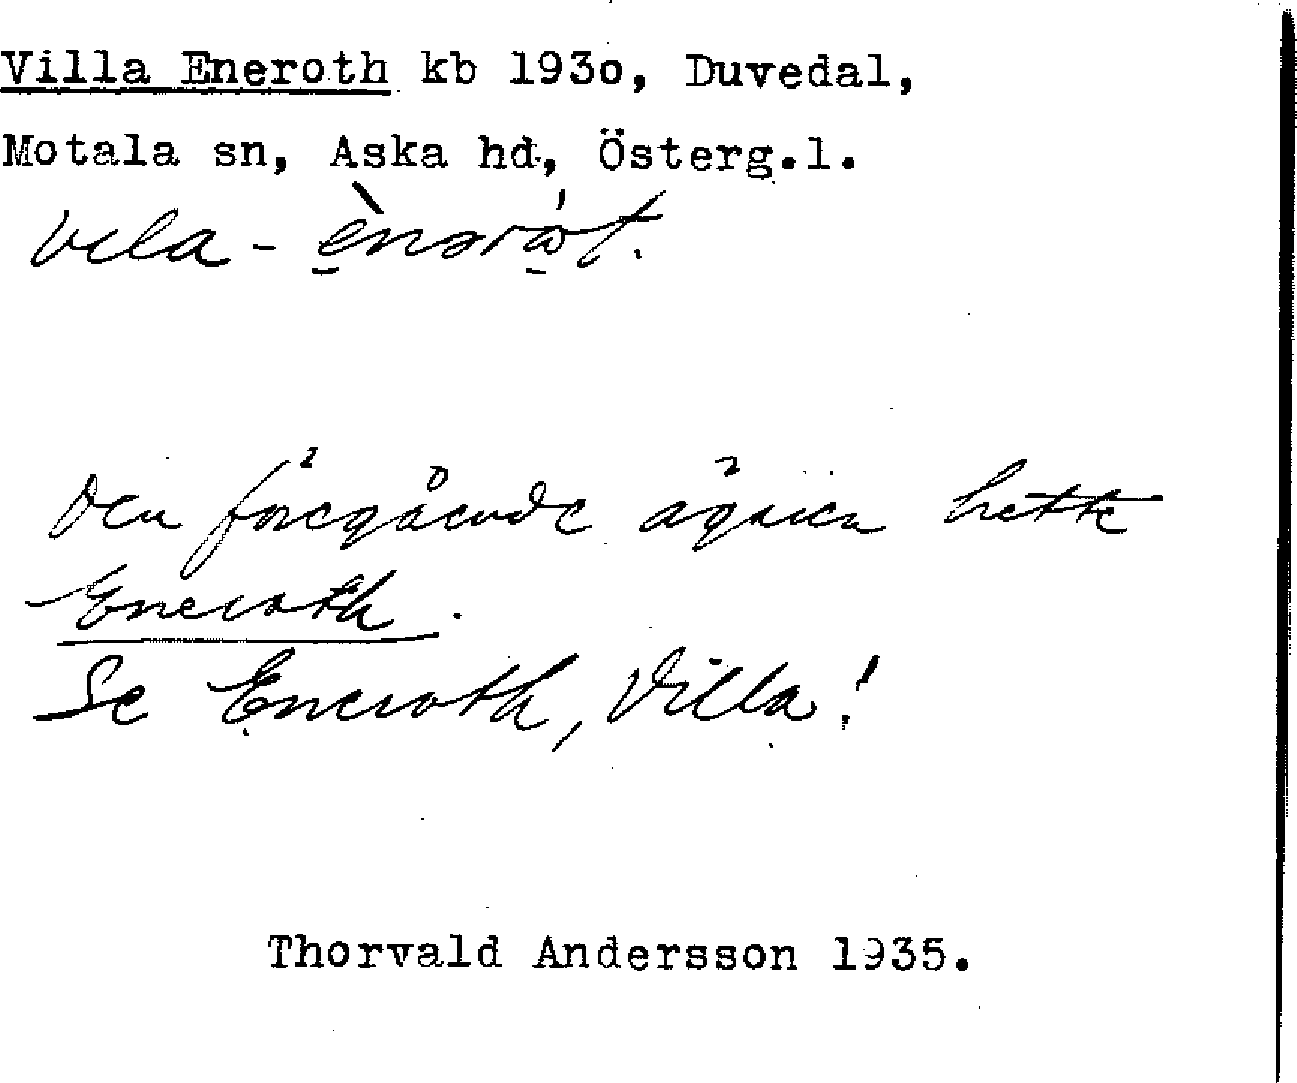 Villa Eneroth kb 193o, Duvedal,
Motala sn, Aska hd, Österg.l.
vila - ènərót.
Den föregående ägaren hette
Eneroth.
Se Eneroth, Villa!
Thorvald Andersson 1935.